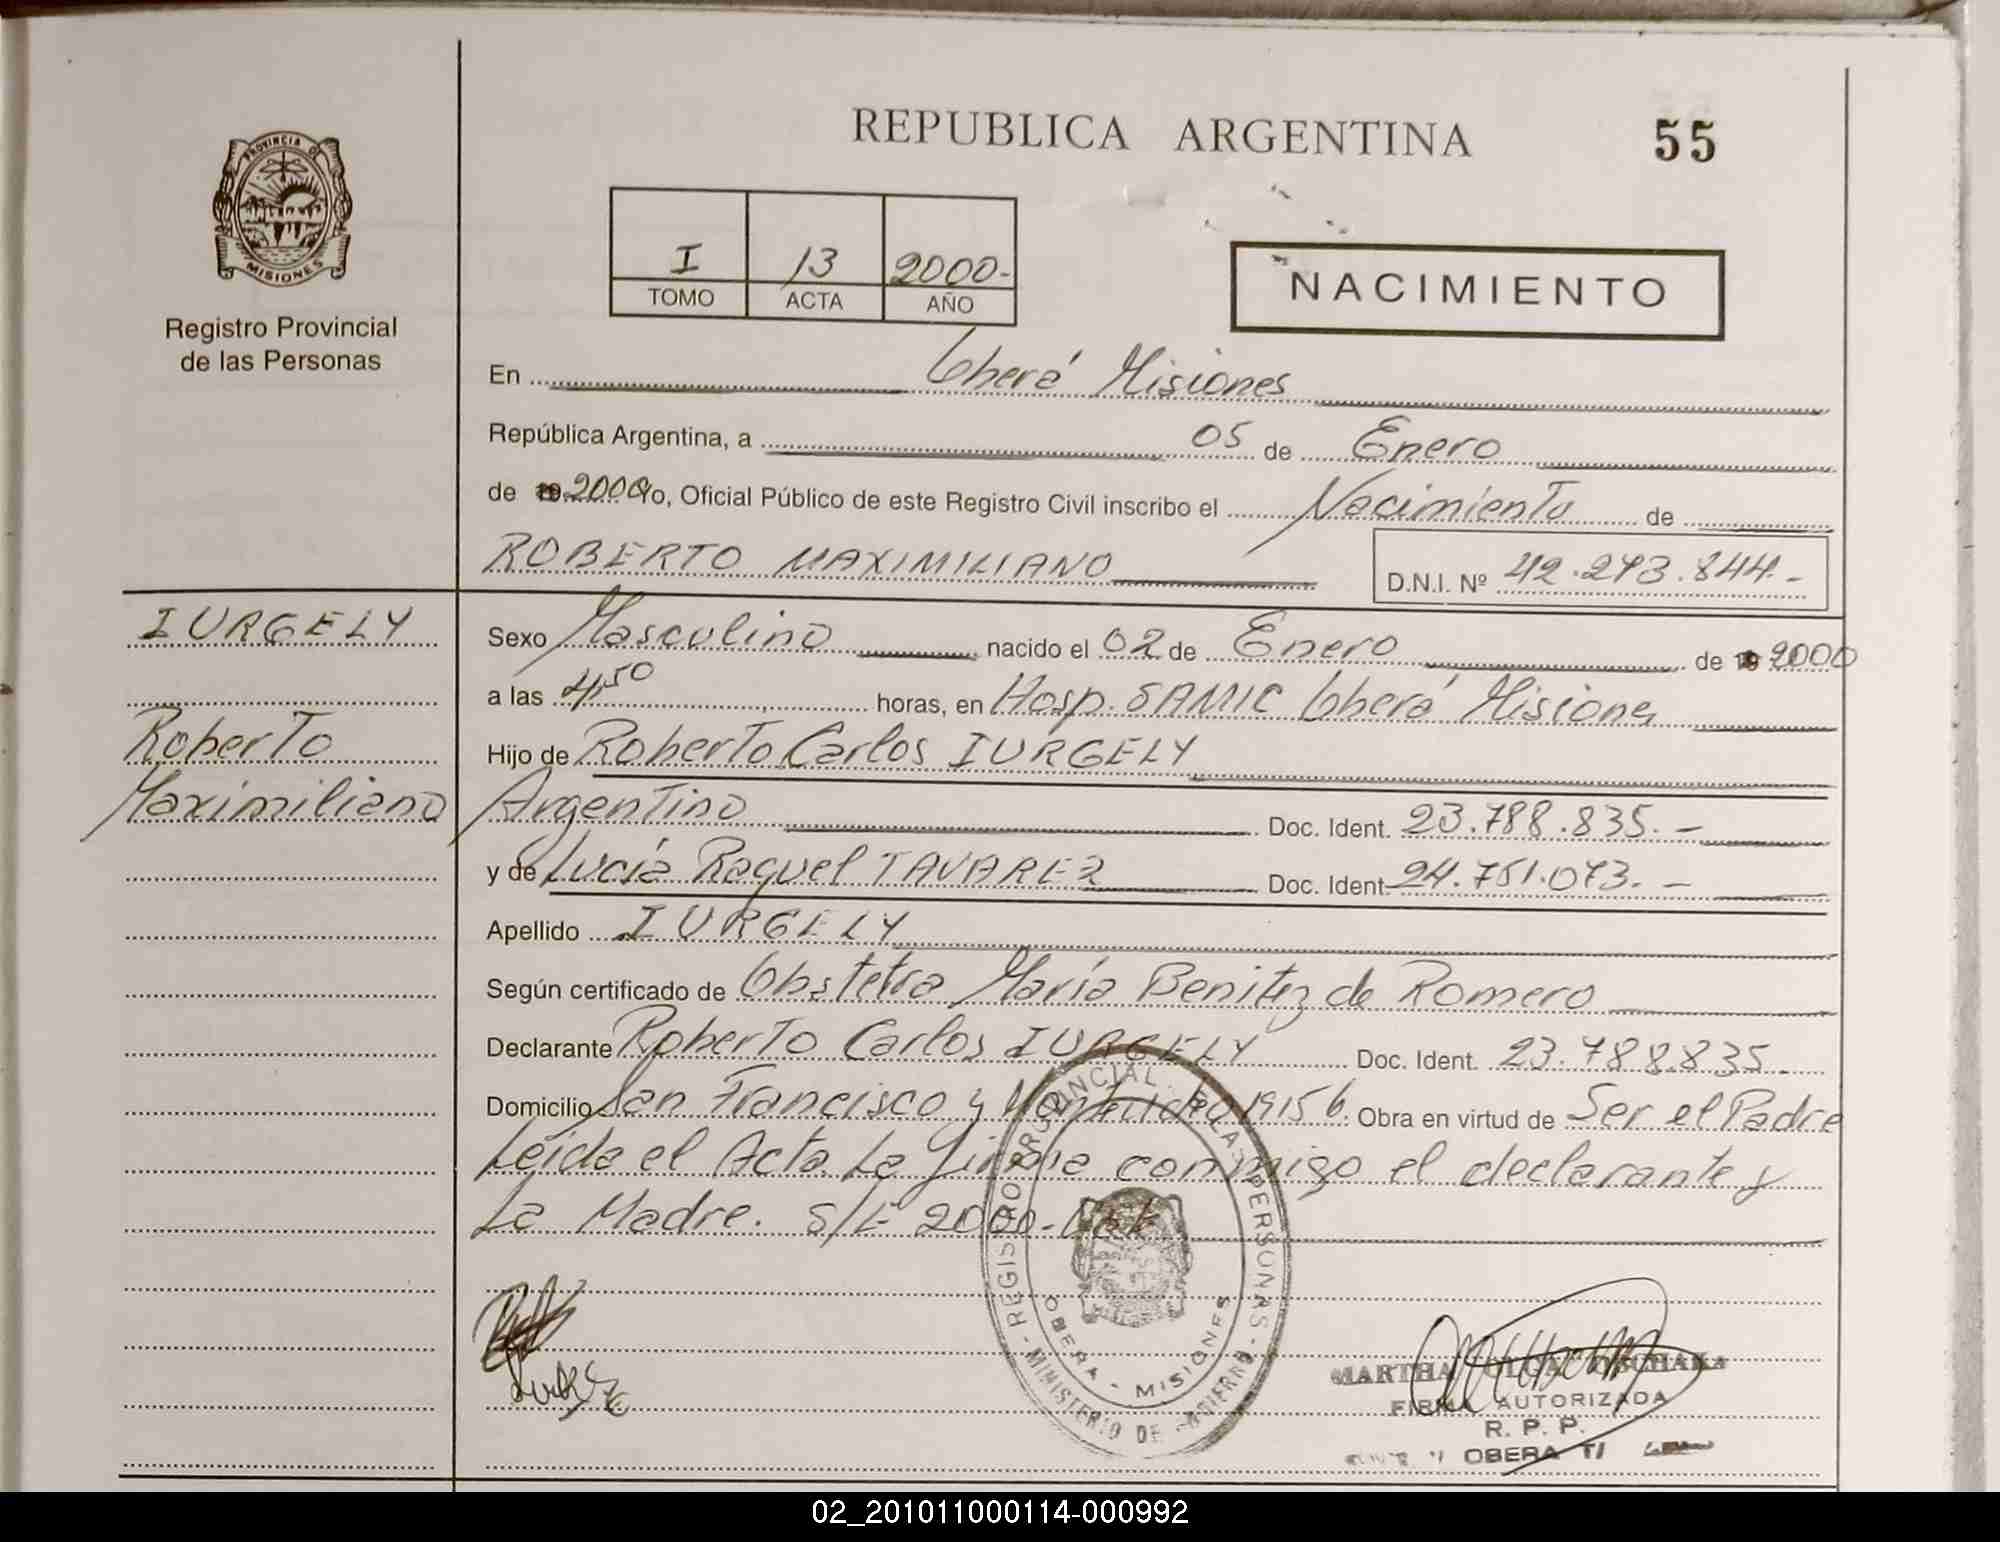 REPUBLICA ARGENTINA
55
PROVINCIA DE
MISIONES
Registro Provincial
de las Personas
I 13 2000-
TOMO ACTA AÑO
NACIMIENTO
En Oberá Misiones
República Argentina, a 05 de Enero
de 19 2000 Yo, Oficial Público de este Registro Civil inscribo el Nacimiento de
ROBERTO MAXIMILIANO D.N.I. Nº 42.273.844.-
IURGELY
Roberto
Maximiliano
Sexo Masculino nacido el 02 de Enero de 19 2000
a las 4,50 horas, en Hosp. SAMIC Oberá Misiones
Hijo de Roberto Carlos IURGELY
Argentino Doc. Ident. 23.788.835.-
y de Lucía Raquel TAVAREZ Doc. Ident. 24.751.073.-
Apellido IURGELY
Según certificado de Obstetra María Benitez de Romero
Declarante Roberto Carlos IURGELY Doc. Ident. 23.788.835.
Domicilio San Francisco y Obra en virtud de Ser el Padre
Leída el Acta La firma conmigo el declarante y
La Madre. S/L 2000-
REGISTRO PROVINCIAL DE LAS PERSONAS
MINISTERIO DE GOBIERNO
OBERA - MISIONES
MARTHA OLGA
FIRMA AUTORIZADA
R. P. P.
OBERA
02_201011000114-000992